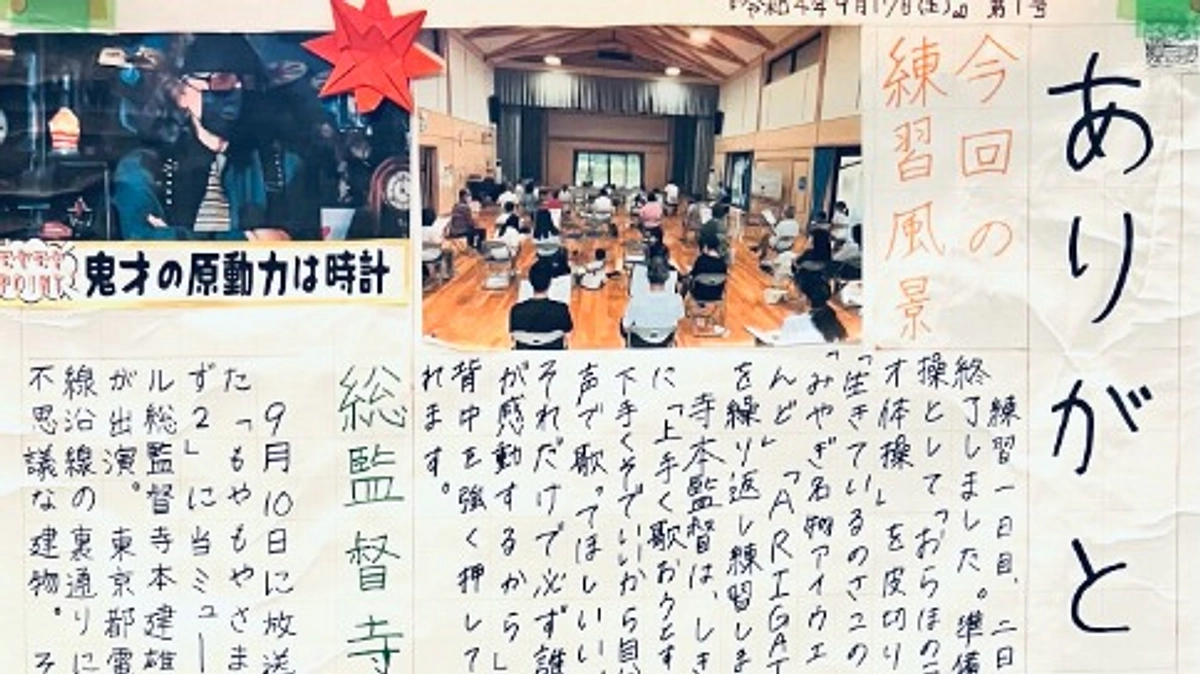 令和4年9月17日(土) 第1号
ありがと
今回の
練習風景
練習一日目、二日
終了しました。準備
操として「おらほのラ
オ体操」を皮切り
「生きているのさこの
「みやぎ名物アイウエ
んど」「ARIGAT
を繰り返し練習しま
寺本監督は、しき
に「上手く歌おうとす
下手くそでいいから自
声で歌ってほしい
それだけで必ず誰
が感動するから」
背中を強く押して
れます。
鬼才の原動力は時計
総監督寺
9月10日に放送
た「もやもやさま
ず2」に当ミュー
ル総監督寺本建雄
が出演。東京都電
線沿線の裏通りに
不思議な建物。そ